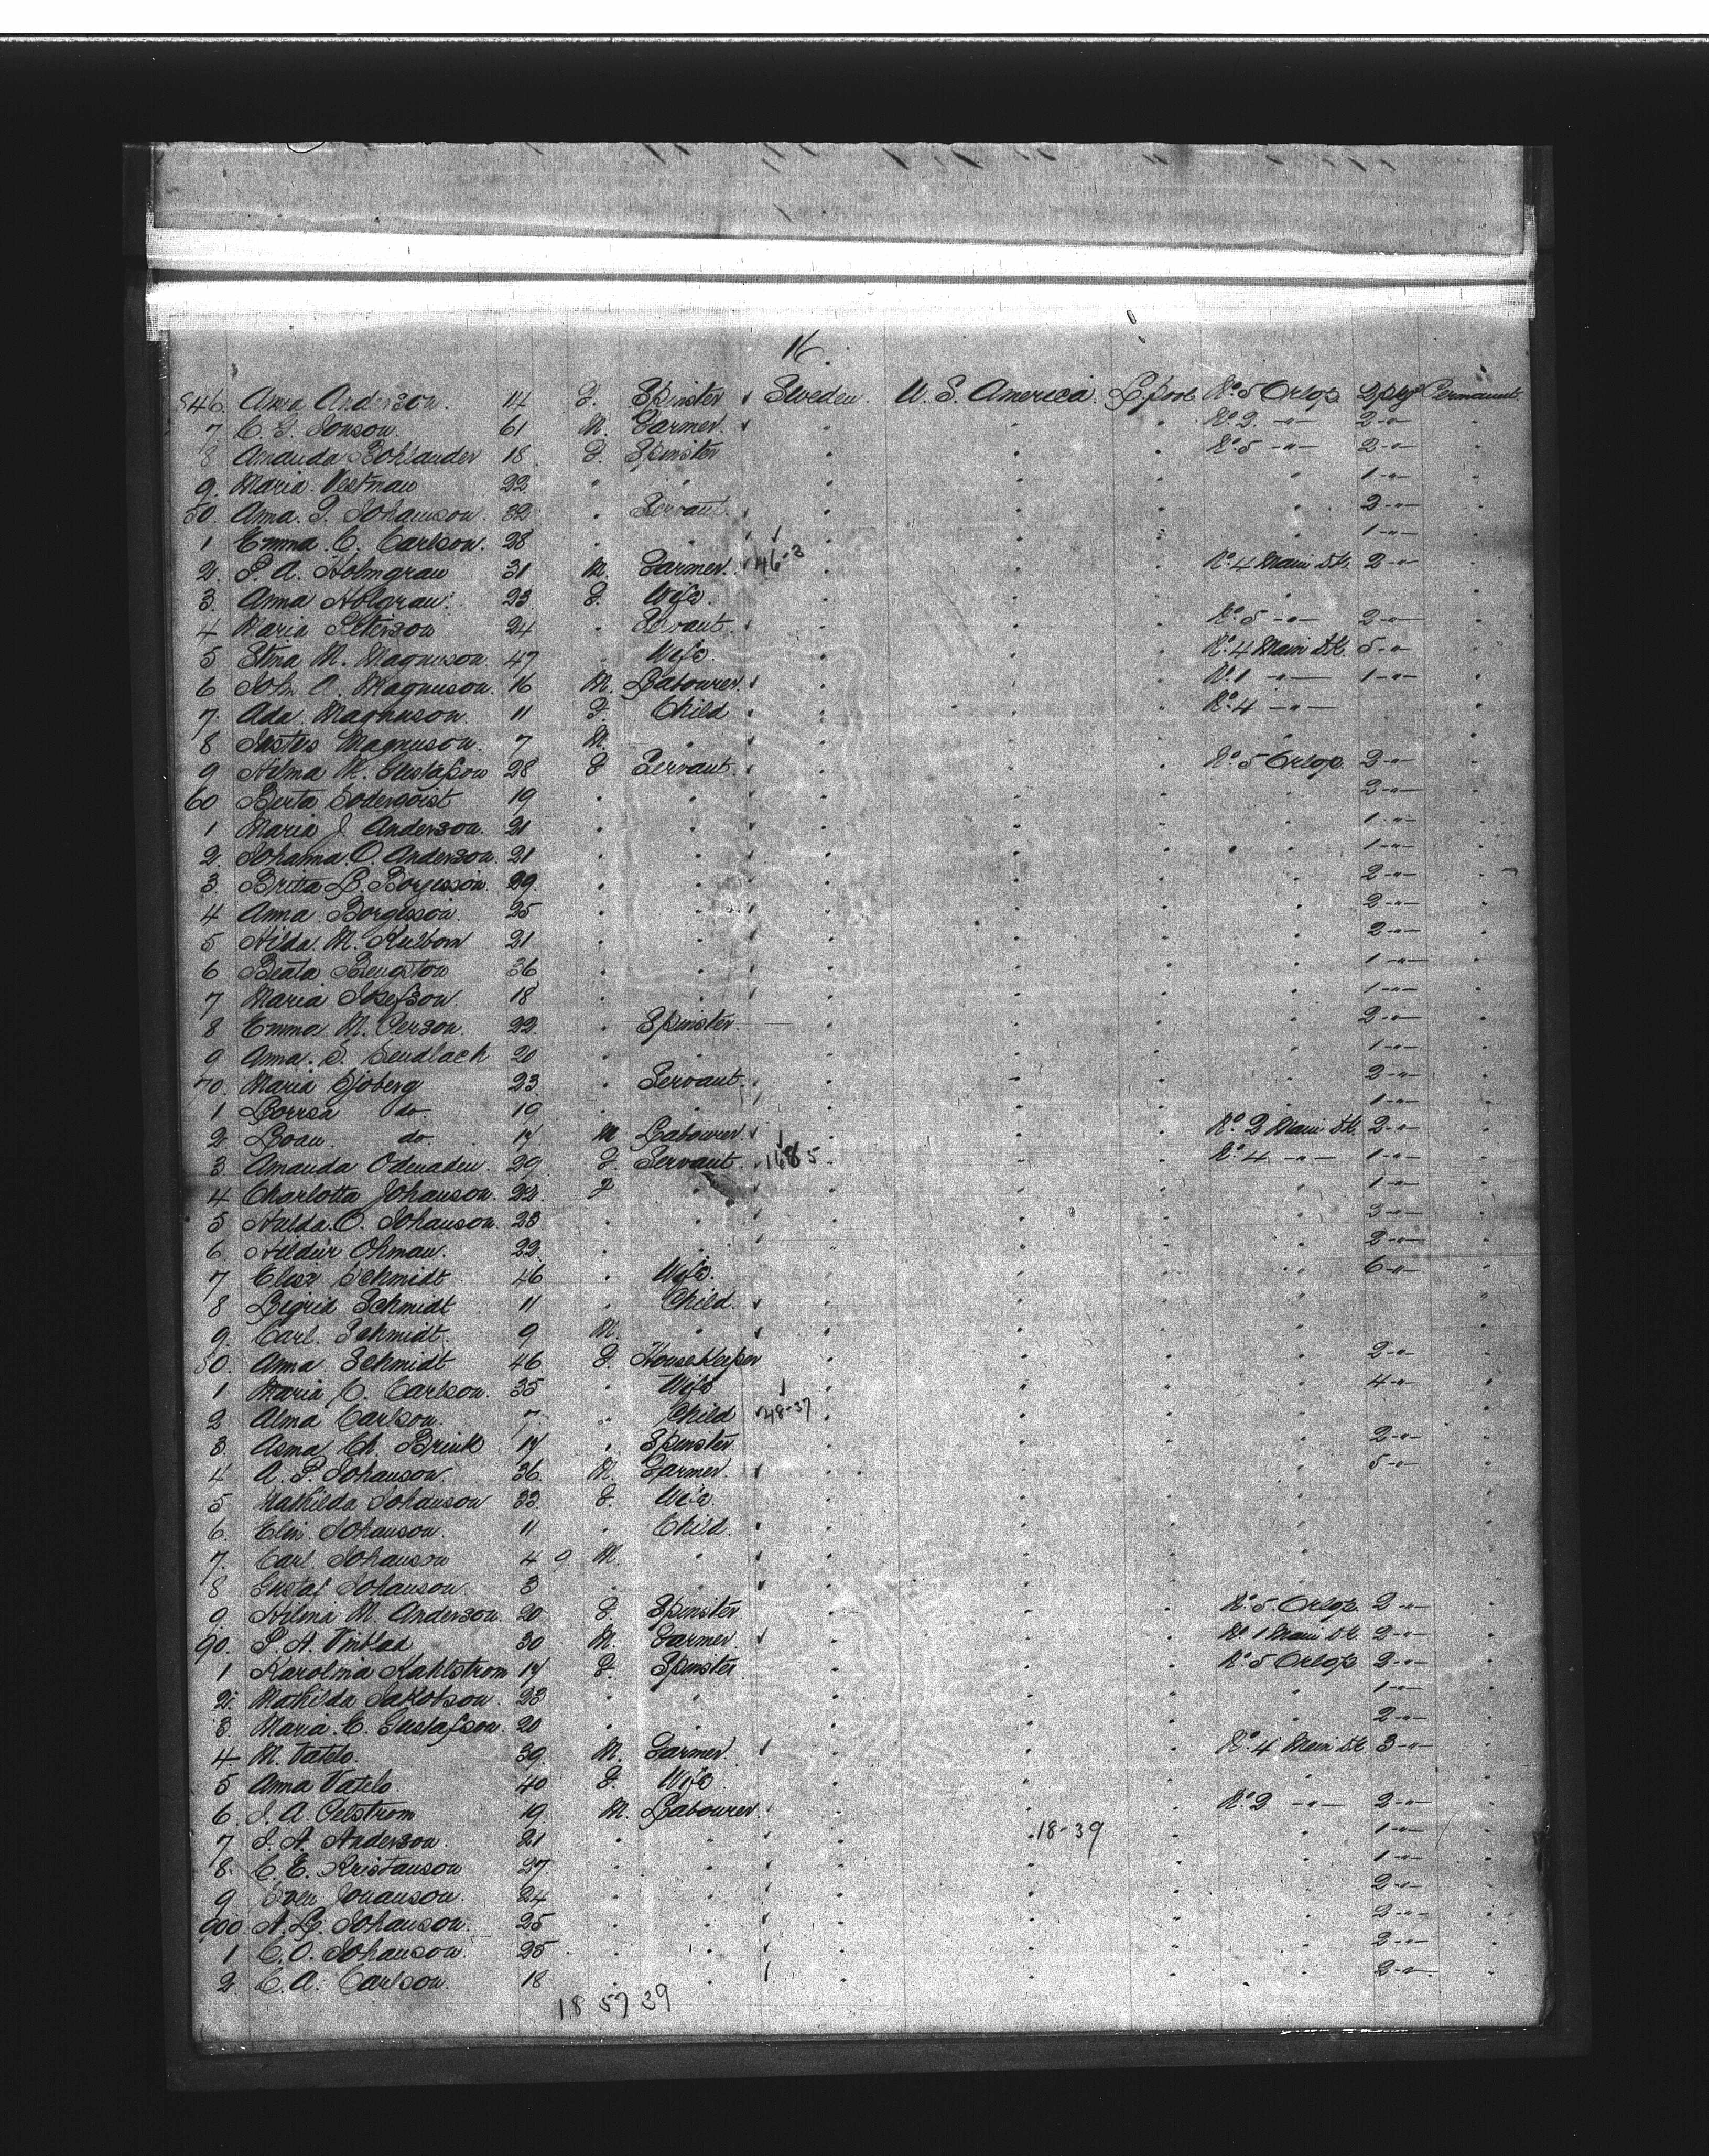 16
846. Anna Anderson. 14 F. Spinster Sweden. U. S. America. L.pool No. 5 Orlop. 2 pkgs Permanent.
7. C. J. Jonson. 61 M. Farmer. No. 2. -"- 2-"-
8 Amanda Bohlander 18 F. Spinster No. 5 -"- 2-"-
9. Maria Vestman 22 " " 1-"-
50. Anna. P. Johanson. 32 " Servant. 2-"-
1 Emma C. Carlson. 28 " " 1-"-
2. P. A. Holmgran 31 M. Farmer. 46-3 No. 4 Main Dk. 2-"-
3. Anna Holgran. 23 F. Wife.
4 Maria Peterson 24 " Servant. No. 5 -"- 2-"-
5 Stina M. Magnuson. 47 " Wife. No. 4 Main Dk. 5-"-
6 John A. Magnuson. 16 M. Labourer. No. 1 -"- 1-"-
7. Ada Magnuson. 11 F. Child No. 4 -"-
8 Magnuson. 7 M. "
9 Hilma M. Gustafson 28 F Servant. No. 5 Orlop. 2-"-
60 Berta Soderqvist 19 " " 2-"-
1 Maria J. Anderson. 21 " " 1-"-
2. Johanna. C. Anderson. 21 " " 1-"-
3. Britta L. Borgesson. 29. " " 2-"-
4 Anna Borgesson. 25 " " 2-"-
5 Hilda. M. 21 " " 2-"-
6 Beata Bengston 36 " " 1-"-
7 Maria Josefson 18 " " 1-"-
8 Emma M. Person. 22. " Spinster. 2-"-
9 Anna. S. 20 " " 1-"-
70. Maria Sjoberg 23 " Servant. 2-"-
1 do. 19 " " 1-"-
2 do. 17 M Labourer. No. 2 Main Dk. 2-"-
3 Amanda Odenaden. 29 F. Servant. 1685 No. 4 -"- 1-"-
4 Charlotta Johanson. 22. F " 1-"-
5 Hulda. C. Johanson. 23 " " 3-"-
6 Hildur Ohman. 22. " " 2-"-
7 Schmidt 46 " Wife. 6-"-
8 Schmidt 11 " Child.
9. Carl. Schmidt. 9 M. "
80. Anna Schmidt 46 F. HouseKeeper 2-"-
1 Maria C. Carlson. 35 " Wife 4-"-
2 Alma Carlson. 7 " Child 48-37
3. Ch. Brink 17 " Spinster 2-"-
4 A. P. Johanson. 36 M. Farmer. 5-"-
5 Mathilda Johanson 33. F. Wife.
6. Elin. Johanson. 11 " Child.
7. Carl. Johanson 4 9 M. "
8 Gustaf Johanson 3 " "
9. Hilma M. Anderson. 20 F. Spinster No. 5. Orlop. 2-"-
90. P. A. Vinblad 30 M. Farmer. No. 1 Main Dk. 2-"-
1 Karolina Kahlstrom 17 F. Spinster. No. 5 Orlop 2-"-
2. Mathilda Jakobson. 23 " " 1-"-
3 Maria. C. Gustafson. 20 " " 2-"-
4 M. Vatelo. 39 M. Farmer. No. 4 Main Dk. 3-"-
5 Anna Vatelo. 40 F. Wife.
6. J. A. 19. M. Labourer. No. 2 -"- 2-"-
7 J. A. Anderson. 21 " " 18-39 1-"-
8. C. E. Kristanson 27. " " 1-"-
9 Sven Johanson. 24 " " 2-"-
900. A. L. Johanson. 25 " " 2-"-
1 C. O. Johanson. 25 " " 2-"-
2 C. A. Carlson. 18 " " 2-"-
18 57 39